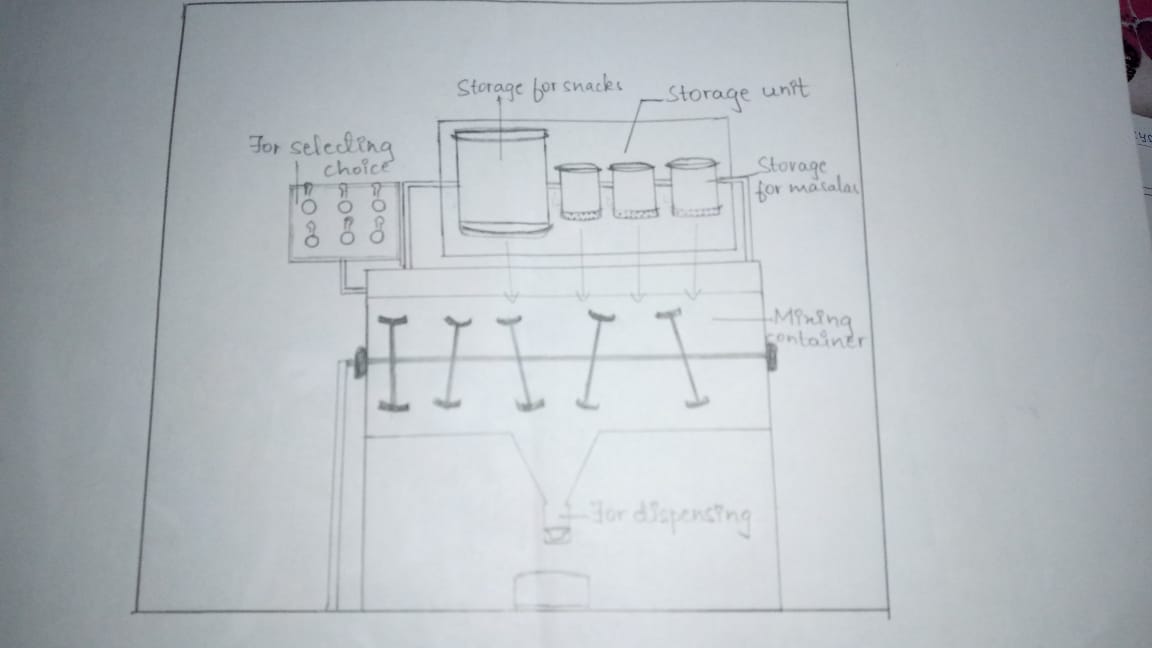 Storage for snacks
Storage unit
For selecting
choice
Storage
for masalas
Mixing
container
For dispensing